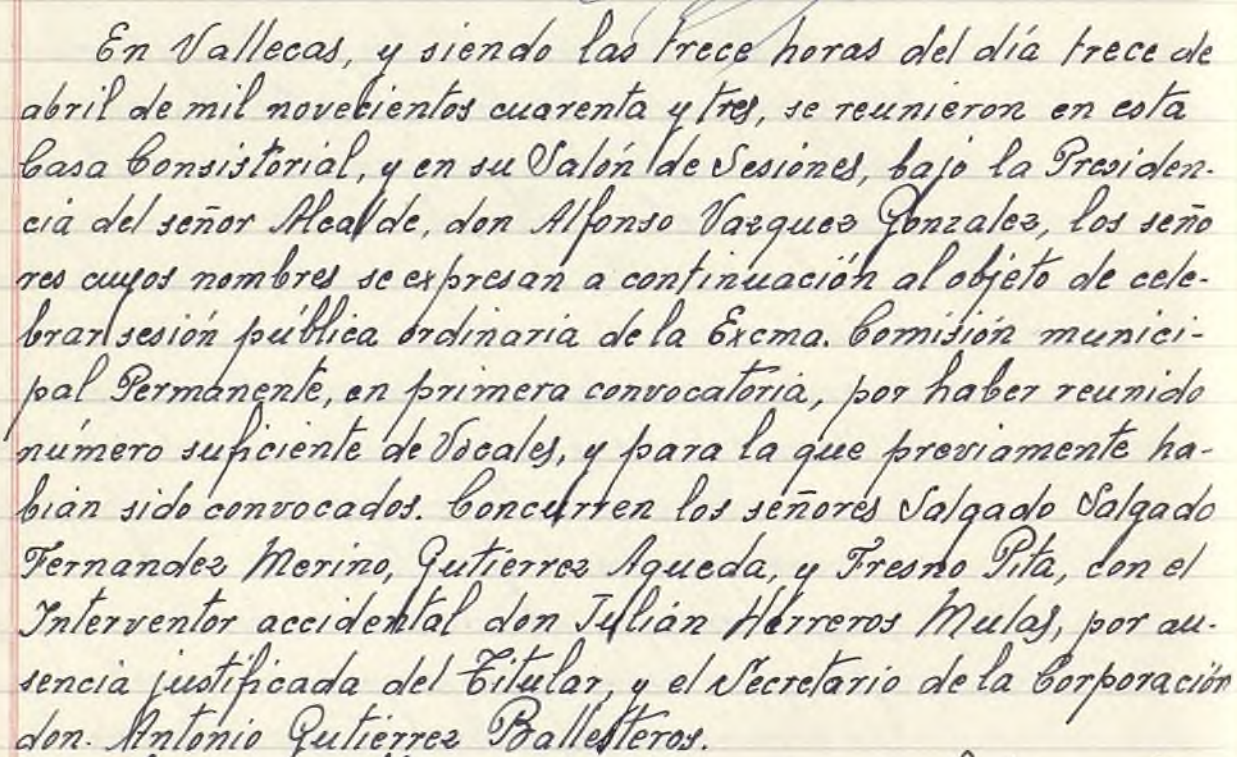 En Vallecas, y siendo las trece horas del día trece de
abril de mil novecientos cuarenta y tres, se reunieron en esta
Casa Consistorial, y en su Salón de Sesiónes, bajo la Presiden-
cia del señor Alcalde, don Alfonso Vazquez Gonzalez, los seño
res cuyos nombres se expresan a continuación al objeto de cele-
brar sesión pública ordinaria de la Excma. Comisión munici-
pal Permanente, en primera convocatoria, por haber reunido
número suficiente de Vocales, y para la que previamente ha-
bian sido convocados. Concurren los señores Salgado Salgado
Fernandez Merino, Gutiérrez Agueda, y Fresno Pita, con el
Interventor accidental don Julián Herreros Mulas, por au-
sencia justificada del Titular, y el Secretario de la Corporación
don. Antonio Gutiérrez Ballesteros.